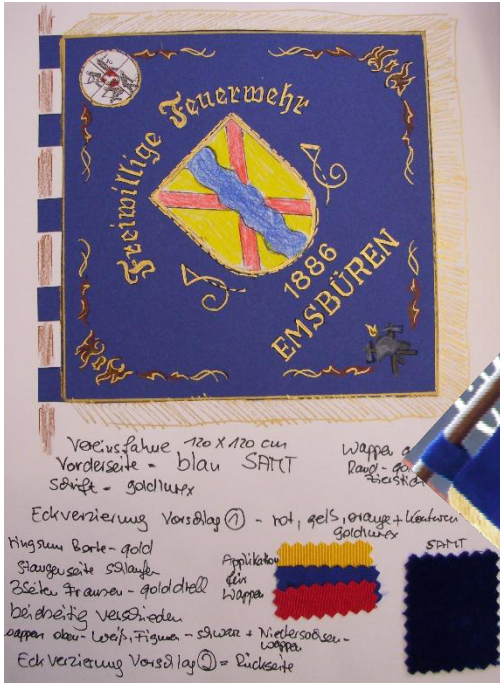 Freiwillige Feuerwehr
1886
EMSBÜREN
Vereinsfahne 120 x 120 cm
Vorderseite - blau SAMT
Schrift - goldlurex
Wappen
Rand - gol
Zierstich
Eckverzierung Vorschlag ① - rot, gelb, orange + Konturen
goldlurex
ringsum Borte - gold
Stangenseite Schlaufen
3 Seiten Fransen - golddrell
beidseitig verschieden
Wappen oben - weiß, Figuren - schwarz + Niedersachsen-
wappen
Eckverzierung Vorschlag ② = Rückseite
Applikation
für
Wappen
SAMT